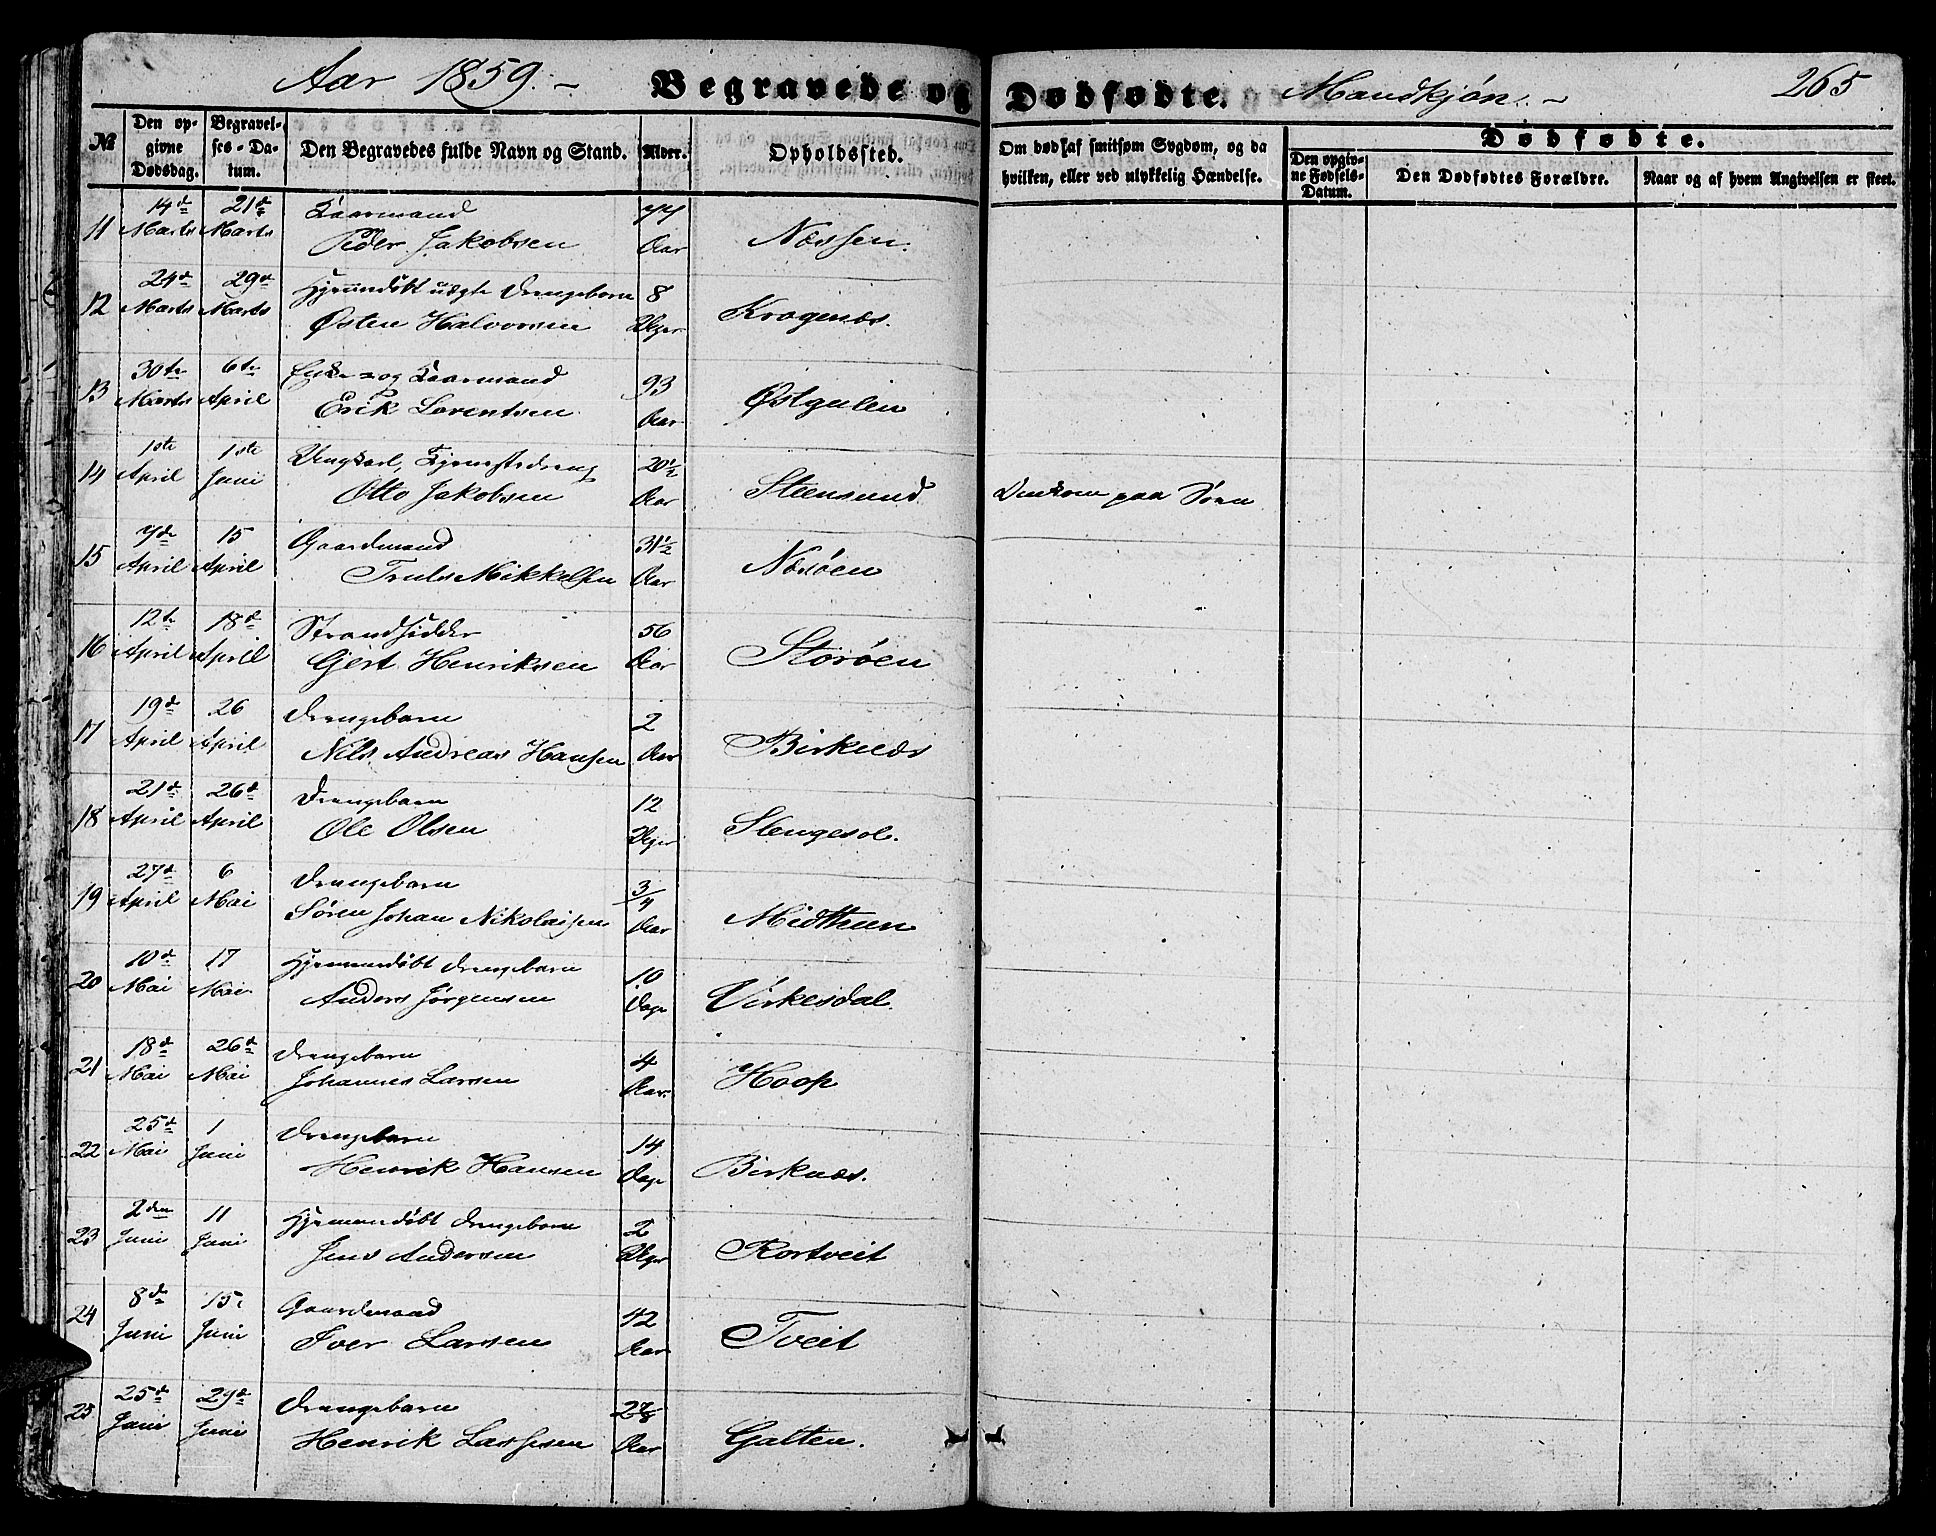 Aar 1859. Begravede og Dødfødte. Mandkjøn. 265
No
Den opgivne Dødsdag.
Begravelses-Datum.
Den Begravedes fulde Navn og Stand.
Alder.
Opholdssted.
Om død af smitsom Sygdom, og da hvilken, eller ved ulykkelig Hændelse.
Dødfødte.
Den opgivne Fødsels-Datum.
Den Dødfødtes Forældre.
Naar og af hvem Angivelsen er skeet.
11 14d Marts 21d Marts Kaarmand 77 Aar
Peder Jakobsen Næssen.
12 24d Marts 29d Marts Hjemmedøbt uægte Drengebarn 8 Uger
Østen Halvorsen Kragenæs.
13 30te Marts 6te April Enke- og Kaarmand 93 Aar
Erik Lorentsen Østgulen
14 1ste April 1ste Juni Ungkarl, Tjenestedreng 20½ Aar
Otto Jakobsen Steensund Omkom paa Søen
15 7de April 15 April Gaardmand 31½ Aar
Truls Mikkelsen Næsøen
16 12te April 18d April Strandsidder 56 Aar
Gjert Henriksen Storøen
17 19d April 26 April Drengebarn 2 Aar
Nils Andreas Hansen Birknæs
18 21d April 26d April Drengebarn 12 Uger
Ole Olsen Stengesol.
19 27d April 6 Mai Drengebarn 3/4 Aar
Søren Johan Nikolaisen Midtthun
20 10d Mai 17 Mai Hjemmedøbt Drengebarn 10 Dage
Anders Jørgensen Virkesdal.
21 18d Mai 26d Mai Drengebarn 4 Aar
Johannes Larsen Hoop
22 25d Mai 1 Juni Drengebarn 14 Dage
Henrik Hansen Birknæs.
23 2den Juni 11 Juni Hjemmedøbt Drengebarn 2 Uger
Jens Andersen Kortveit
24 8de Juni 15 Juni Gaardmand 42 Aar
Iver Larsen Tveit
25 25d Juni 29d Juni Drengebarn 2⅞ Aar
Henrik Lassesen Galten.